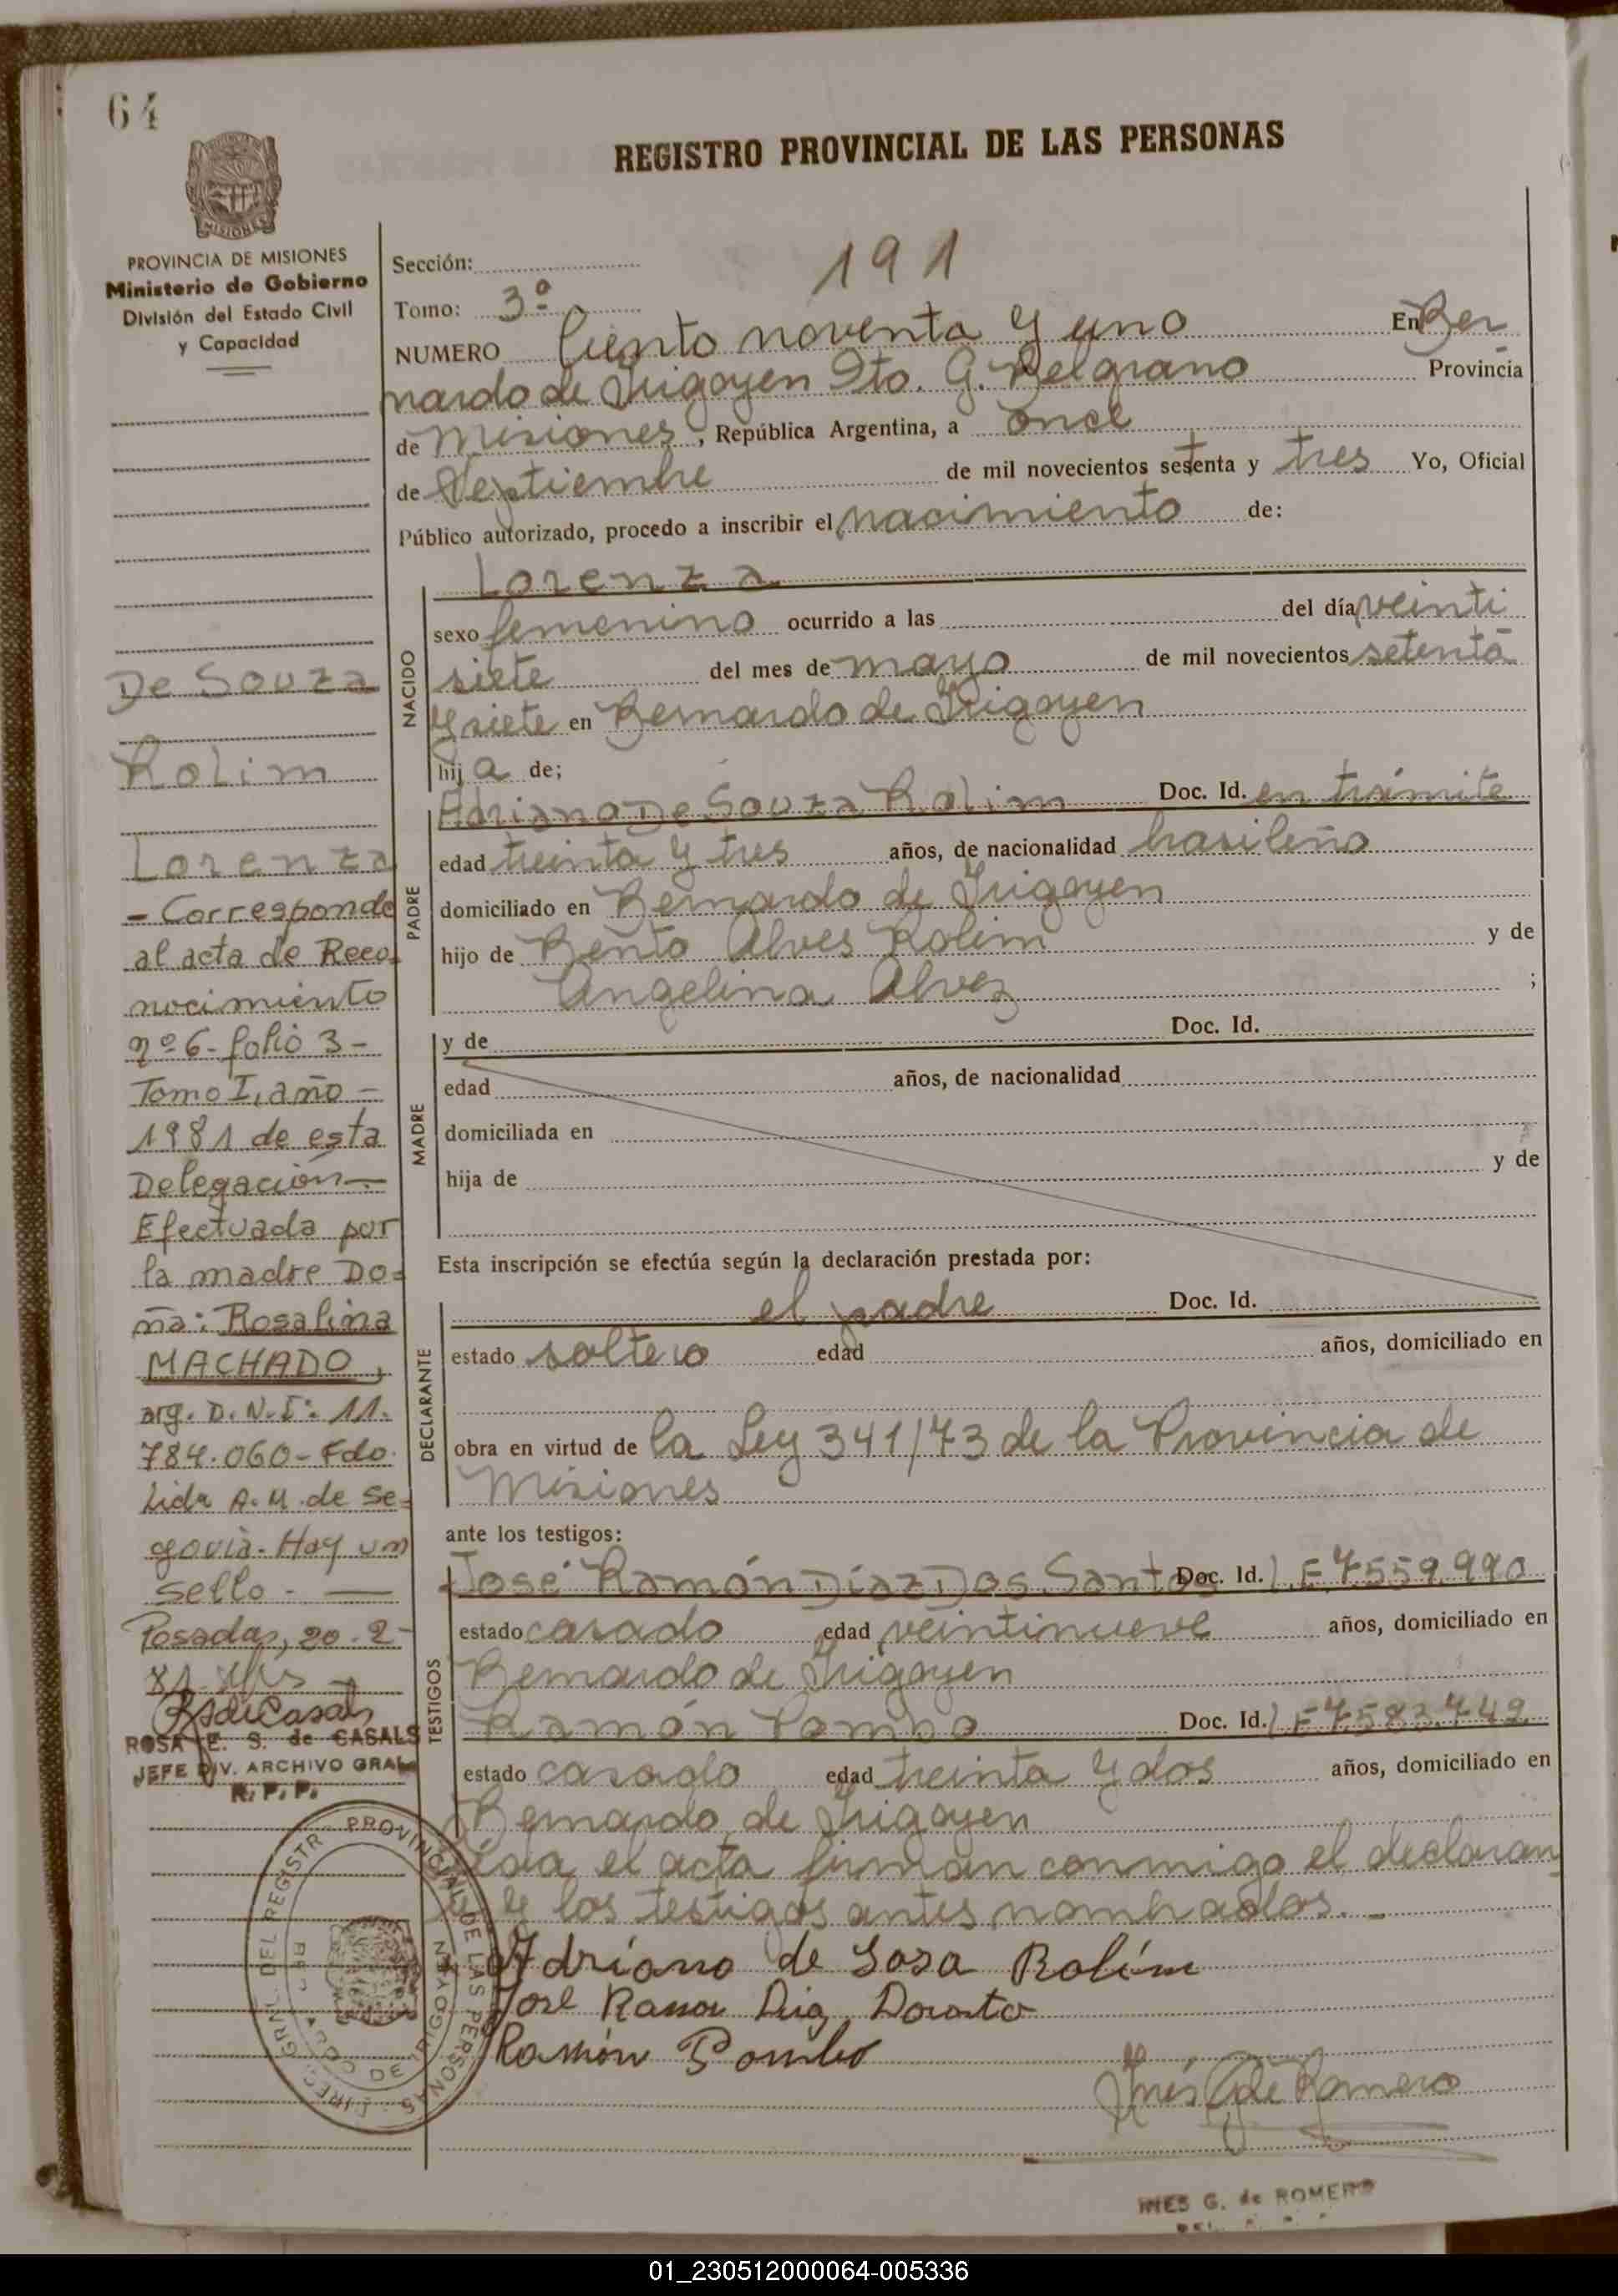 64
REGISTRO PROVINCIAL DE LAS PERSONAS
MISIONES
PROVINCIA DE MISIONES
Ministerio de Gobierno
División del Estado Civil
y Capacidad
De Souza
Rolim
Lorenza
- Corresponde
al acta de Reco-
nocimiento
nº 6 - folio 3 -
Tomo I, año -
1981 de esta
Delegación -
Efectuada por
la madre Do=
ña: Rosalina
MACHADO,
arg. D.N.I: 11.
784.060 - Fdo.
Lida A. M. de Se=
govia. Hay un
sello. -
Posadas, 20-2-
81
ROSA E. S. de CASALS
JEFE DIV. ARCHIVO GRAL
R. P. P.
191
Sección:
Tomo: 3º
NUMERO Ciento noventa y uno En Ber
nardo de Irigoyen Dto. G. Belgrano Provincia
de Misiones, República Argentina, a once
de Septiembre de mil novecientos setenta y tres Yo, Oficial
Público autorizado, procedo a inscribir el nacimiento de:
NACIDO
Lorenza
sexo femenino ocurrido a las del día veinti
siete del mes de mayo de mil novecientos setenta
y siete en Bernardo de Irigoyen
hija de;
PADRE
Adriano De Souza Rolim Doc. Id. en trámite
edad treinta y tres años, de nacionalidad brasileño
domiciliado en Bernardo de Irigoyen
hijo de Bento Alves Rolim y de
Angelina Alvez ;
MADRE
y de Doc. Id.
edad años, de nacionalidad
domiciliada en
hija de y de
Esta inscripción se efectúa según la declaración prestada por:
DECLARANTE
el padre Doc. Id.
estado soltero edad años, domiciliado en
obra en virtud de la Ley 341/73 de la Provincia de
Misiones
ante los testigos:
TESTIGOS
José Ramón Díaz Dos Santos Doc. Id. LE 7559.990
estado casado edad veintinueve años, domiciliado en
Bernardo de Irigoyen
Ramón Pombo Doc. Id. LE 7.583.749
estado casado edad treinta y dos años, domiciliado en
Bernardo de Irigoyen
Leída el acta firman conmigo el declaran
te y los testigos antes nombrados. -
Adriano de Sosa Rolím
Jose Ramon
Ramón Pombo
Inés G de Romero
INES G. de ROMERO
DIREC. GRAL. DEL REGISTR. PROVINCIAL DE LAS PERSONAS
01_230512000064-005336